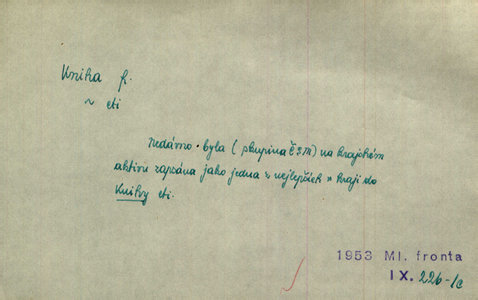 Kniha f.
~ cti
Nedávno byla (skupina ČSM) na krajském
aktivu zapsána jako jedna z nejlepších v kraji do
Knihy cti.
1953 Ml. fronta
IX. 226-1c